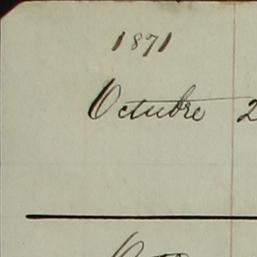 1871
Octubre 2